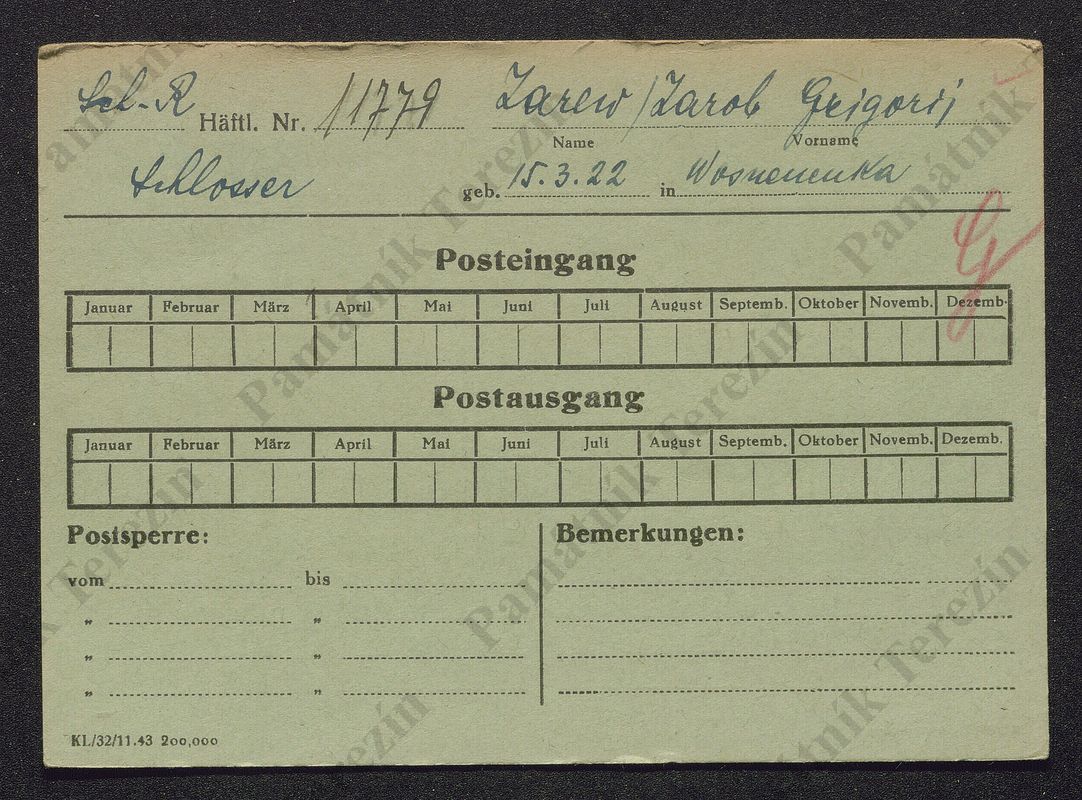 Sch-R Häftl. Nr. 11779 Zarew/Zarob Grigorij
Name Vorname
Schlosser geb. 15.3.22 in Wosnenenka
Posteingang
Januar Februar März April Mai Juni Juli August Septemb. Oktober Novemb. Dezemb.
Postausgang
Januar Februar März April Mai Juni Juli August Septemb. Oktober Novemb. Dezemb.
Postsperre: Bemerkungen:
vom bis
" "
" "
" "
KL/32/11.43 200,000
Památník Terezín